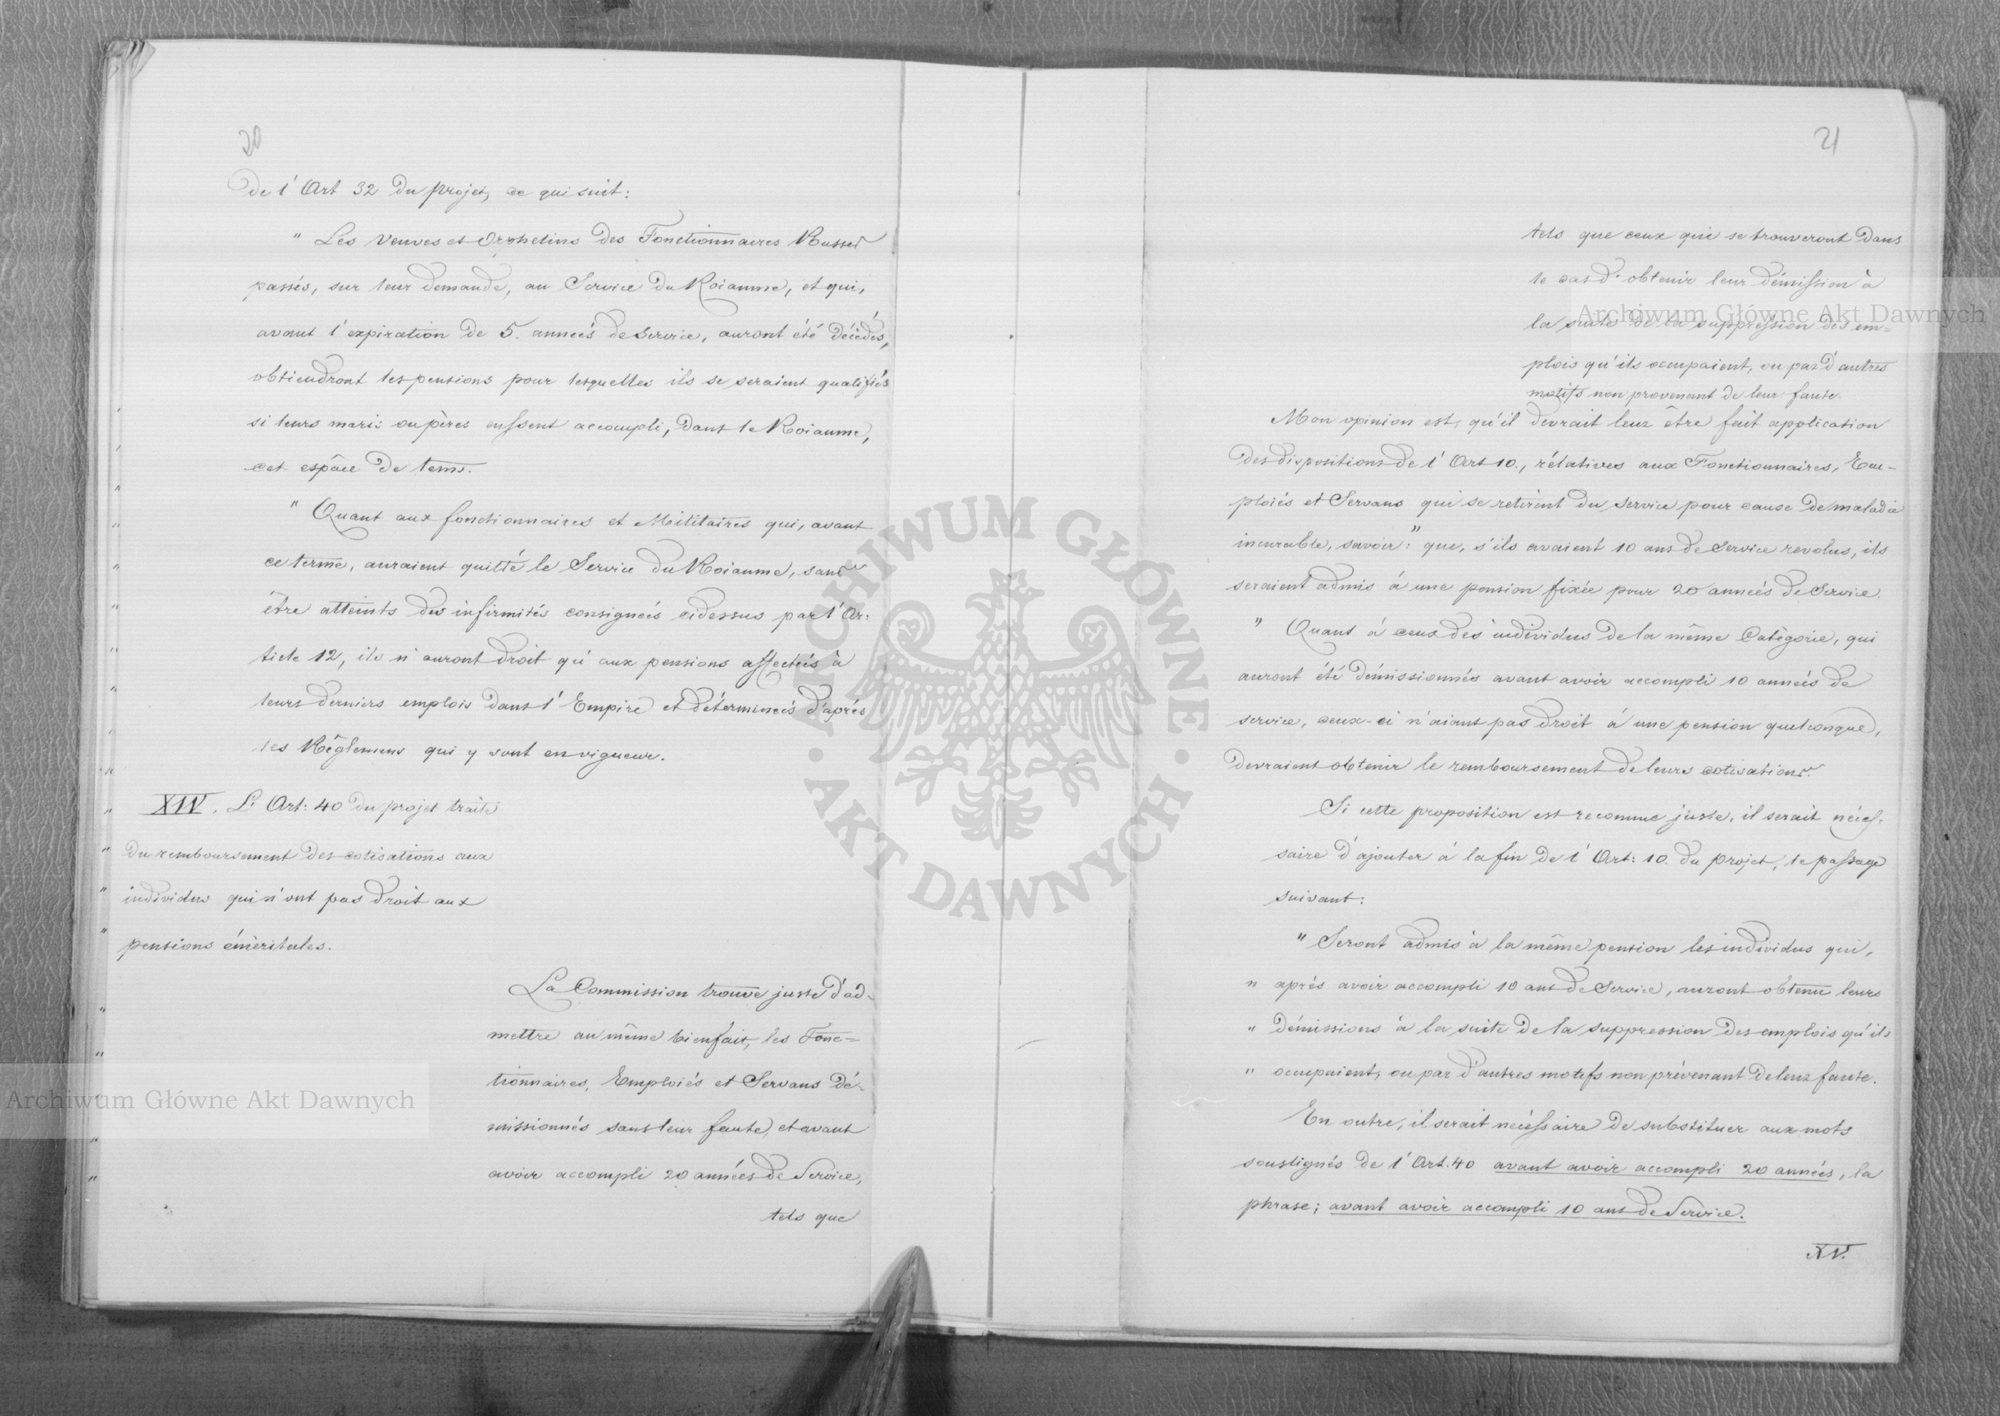 20
de l'Art 32 du projet, ce qui suit:
" Les Veuves et Orphelins des Fonctionnaires Russes
passés, sur leur demande, au Service du Roiaume, et qui,
avant l'expiration de 5. années de Service, auront été décédés,
obtiendront les pensions pour lesquelles ils se seraient qualifiés
si leurs maris ou pères eussent accompli, dans le Roiaume,
cet espâce de tems.
" Quant aux fonctionnaires et Militaires qui, avant
ce terme, auraient quitté le Service du Roiaume, sans
être atteints des infirmités consignées cidessus par l'Ar-
ticle 12, ils n'auront droit qu'aux pensions affectées à
leurs derniers emplois dans l'Empire et déterminées d'après
les Règlemens qui y sont en vigueur.
" XIV. L'Art: 40 du projet traite
" du remboursement des cotisations aux
" individus qui n'ont pas droit aux
" pensions émèritales.
" La Commission trouve juste d'ad-
mettre au même bienfait, les Fonc-
tionnaires, Emploiés et Servans dé-
missionnés sans leur faute, et avant
avoir accompli 20 années de Service,
tels que
21
tels que ceux qui se trouveront dans
le cas d'obtenir leur démission à
la suite de la suppression des em-
plois qu'ils occupaient, ou par d'autres
motifs non provenant de leur faute.
Mon opinion est, qu'il devrait leur être fait application
des dispositions de l'Art 10., rélatives aux Fonctionnaires, Em-
ploiés et Servans qui se retirent du service pour cause de maladie
incurable, savoir: " que, s'ils avaient 10 ans de Service revolus, ils
seraient admis à une pension fixée pour 20 années de Service.
" Quant à ceux des individus de la même Catègorie, qui
auront été démissionnés avant avoir accompli 10 années de
service, ceux-ci n'aiant pas droit à une pension quelconque,
devraient obtenir le remboursement de leurs cotisations."
Si cette proposition est reconnue juste, il serait néces-
saire d'ajouter à la fin de l'Art: 10. du projet, le passage
suivant:
" Seront admis à la même pension les individus qui,
" après avoir accompli 10 ans de Service, auront obtenu leurs
" démissions à la suite de la suppression des emplois qu'ils
" occupaient, ou par d'autres motifs non prévenant de leur faute.
En outre, il serait nécéssaire de substituer aux mots
soustignés de l'Art. 40 avant avoir accompli 20 années, la
phrase; avant avoir accompli 10 ans de Service.
XV.
ARCHIWUM GŁÓWNE · AKT DAWNYCH ·
Archiwum Główne Akt Dawnych
Archiwum Główne Akt Dawnych